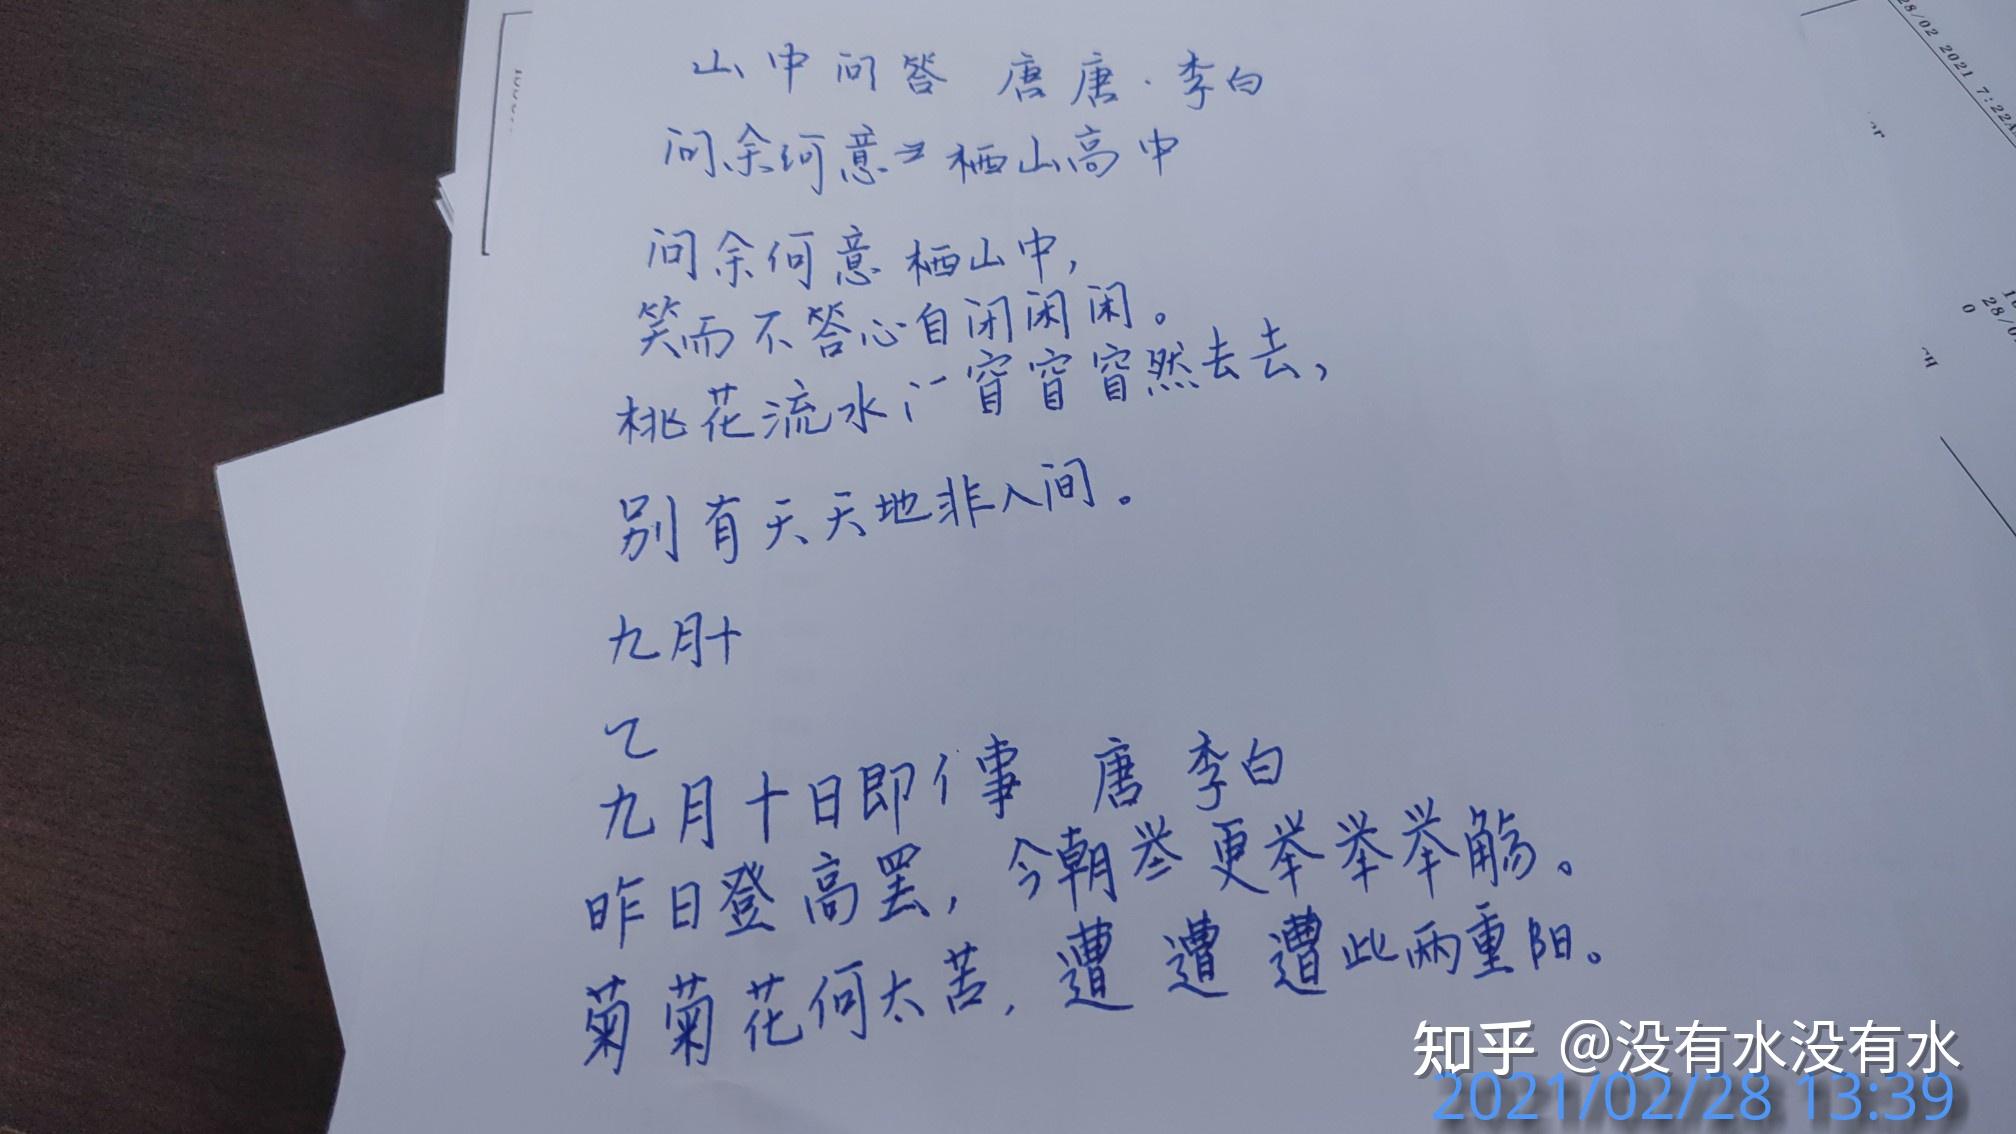 山中问答 唐唐·李白
问余何意 栖山高中
问余何意栖山中,
笑而不答心自闭闲闲。
桃花流水 窅窅窅然去去,
别有天天地非人间。
九月十
九月十日即事 唐 李白
昨日登高罢,今朝 更举举举觞。
菊菊花何太苦,遭遭遭此两重阳。
28/02 2021 7:22A
知乎 @没有水没有水
2021/02/28 13:39